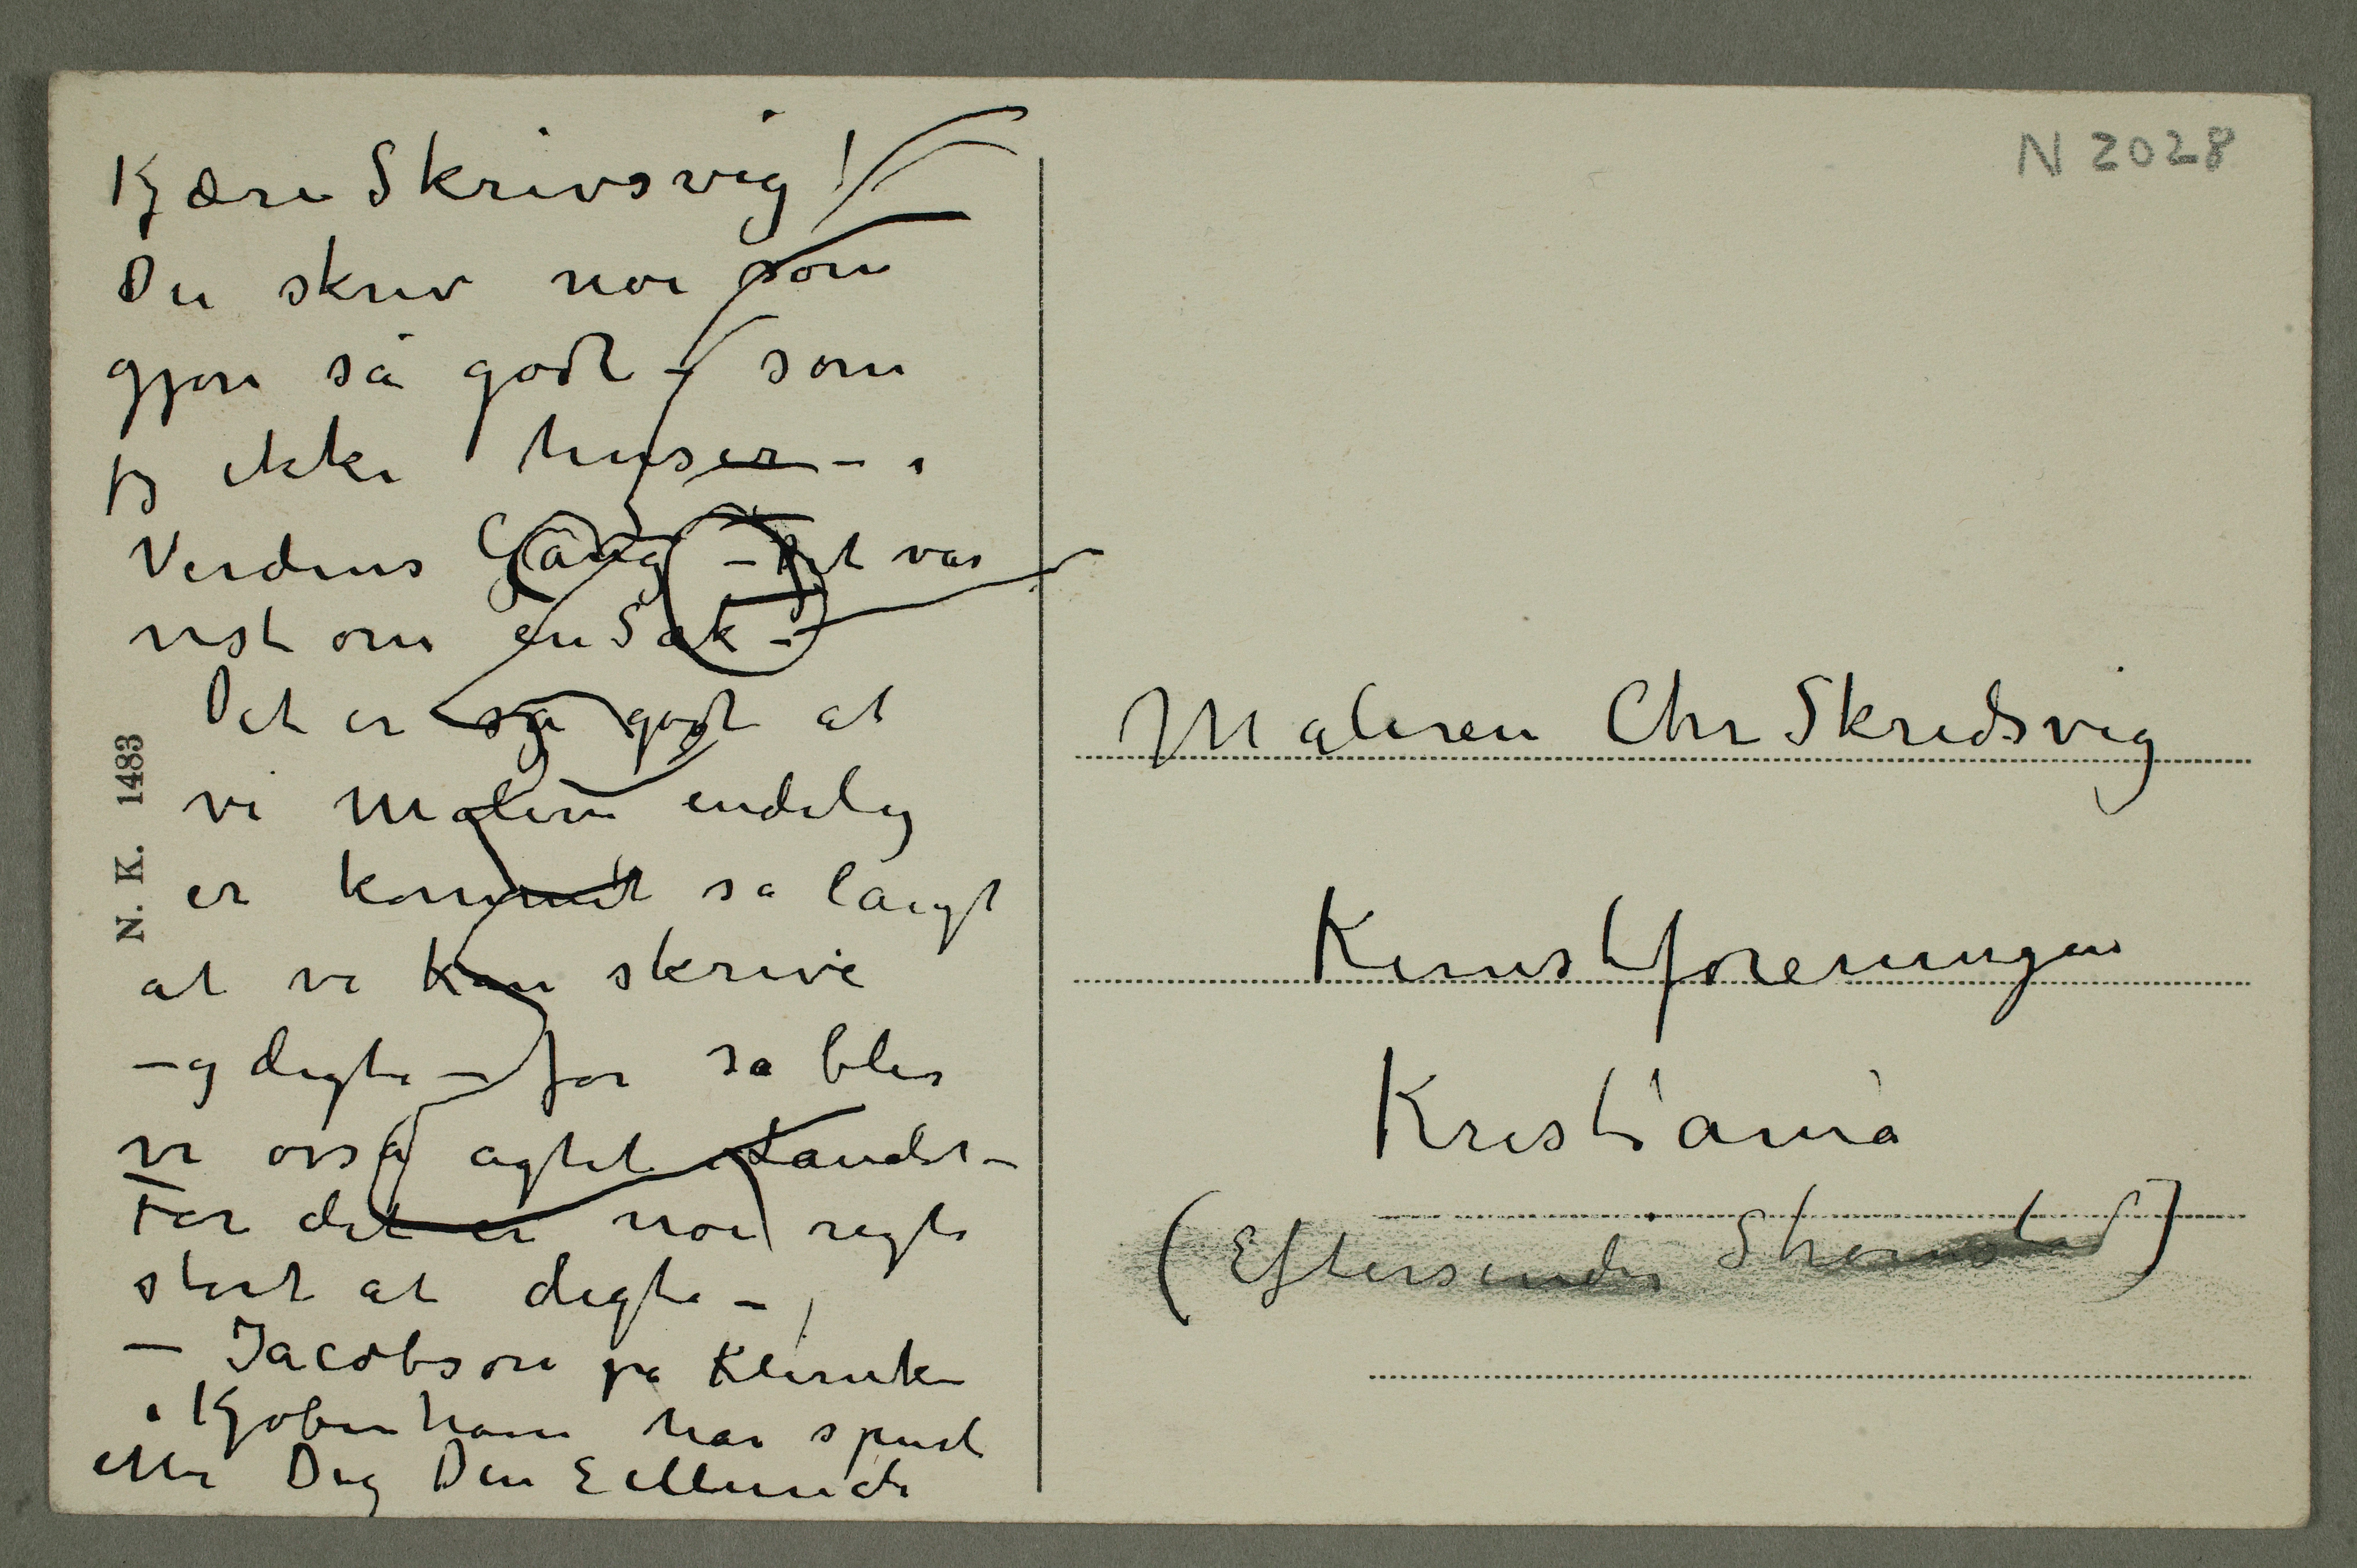 Kjære Skrivsvig!
Du skrev noe som
gjør så godt – som
jeg ikke huser – i
Verdens Gang – Det var
vist om en Sak –
Det er så godt at
vi Malere endelig
er kommet så langt
at vi kan skrive
– og digte – for så blir
vi også agtet i Landet –
For det er noe rigtig
stort at digte –
– Jacobson på Klinik
i Kjøbenhavn har spurt
efter Dig Din E Munch
N. K. 1483
N 2028
Maleren Chr Skredsvig
Kunstforeningen
Kristiania
(Eftersendes Strømstad)